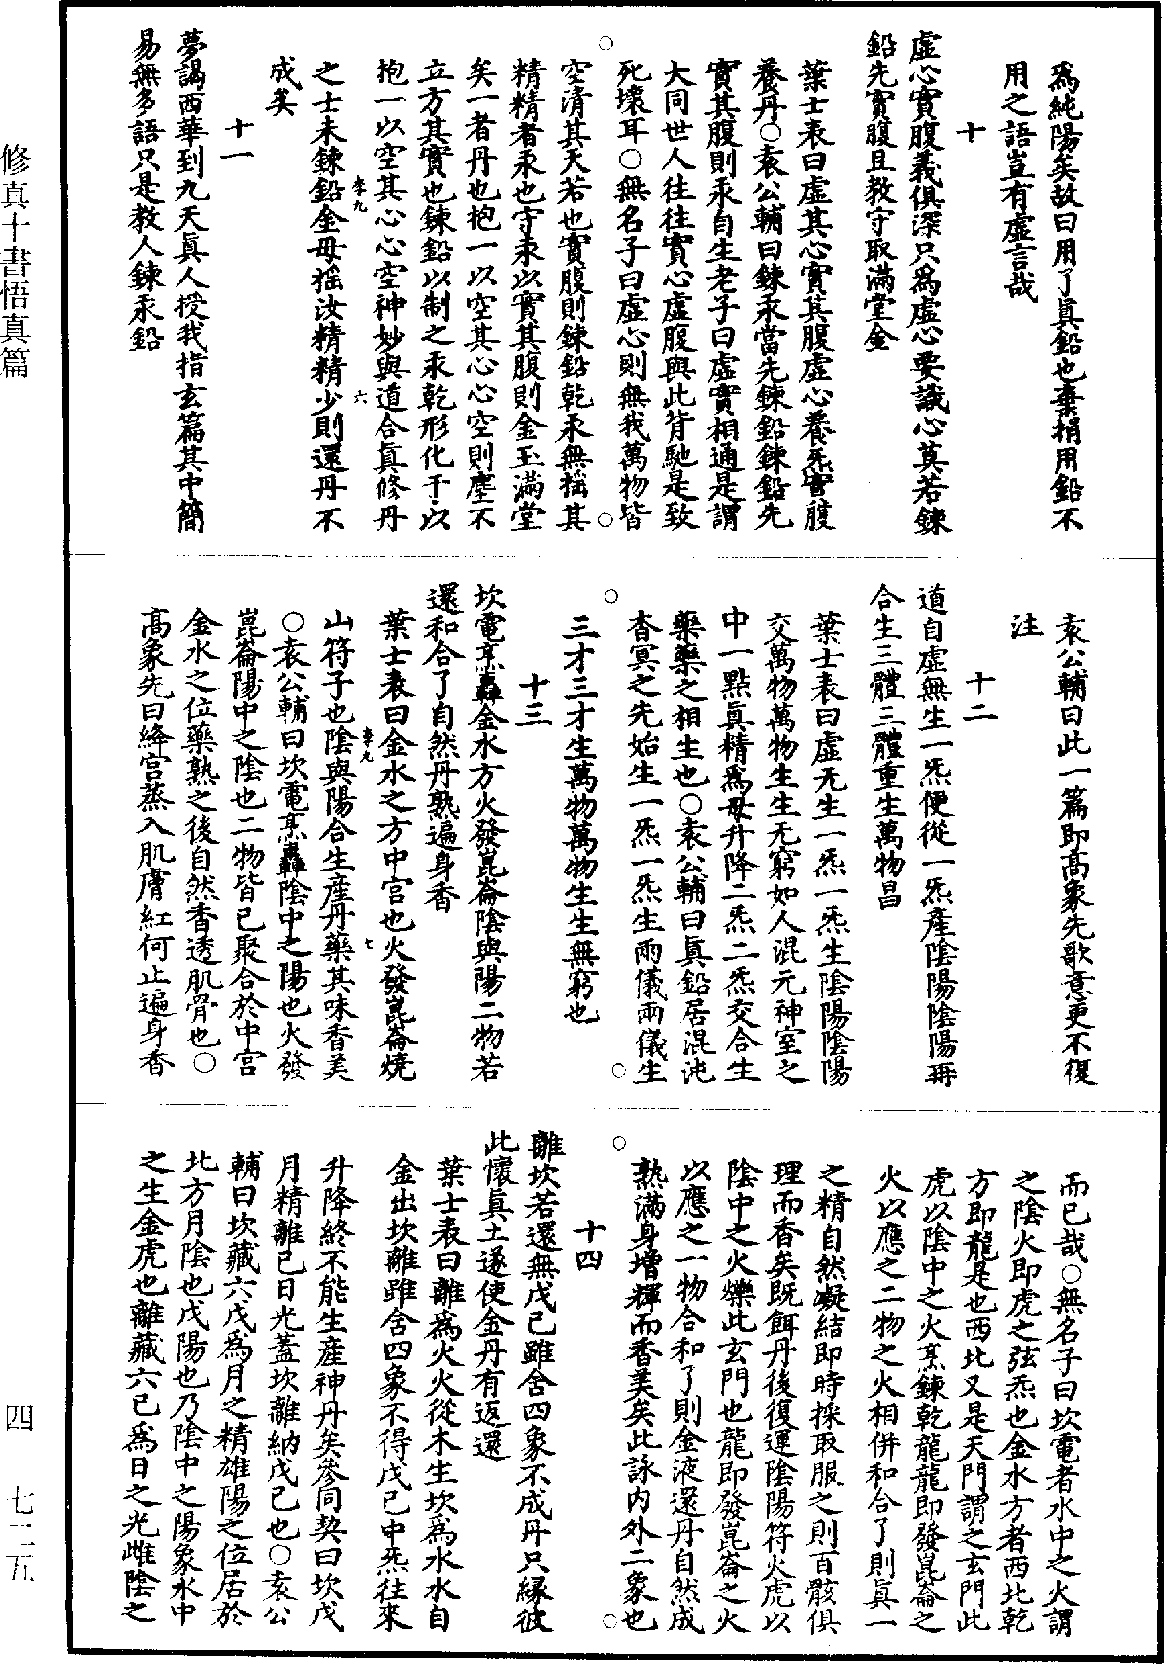 爲純陽矣故曰用了眞鉛也棄捐用鉛不
用之語豈有虛言哉
十
虛心實腹義俱深只爲虛心要識心莫若鍊
鉛先實腹且教守取滿堂金
葉士表曰虛其心實其腹虛心養炁實腹
養丹○袁公輔曰鍊汞當先鍊鉛鍊鉛先
實其腹則汞自生老子曰虛實相通是謂
大同世人往往實心虛腹與此背馳是致
死壞耳○無名子曰虛心則無我萬物皆
空清其天若也實腹則鍊鉛乾汞無搖其
精精者汞也守汞以實其腹則金玉滿堂
矣一者丹也抱一以空其心心空則塵不
立方其實也鍊鉛以制之汞乾形化于以
抱一以空其心心空神妙與道合眞修丹
李九
六
之士未鍊鉛金母搖汝精精少則還丹不
成矣
十一
夢謁西華到九天眞人授我指玄篇其中簡
易無多語只是教人鍊汞鉛
袁公輔曰此一篇即高象先歌意更不復
注
十二
道自虛無生一炁便從一炁產陰陽陰陽再
合生三體三體重生萬物昌
葉士表曰虛无生一炁一炁生陰陽陰陽
交萬物萬物生生无窮如人混元神室之
中一點眞精爲母升降二炁二炁交合生
藥藥之相生也○袁公輔曰眞鉛居混沌
杳冥之先始生一炁一炁生兩儀兩儀生
三才三才生萬物萬物生生無窮也
十三
坎電烹轟金水方火發崑崙陰與陽二物若
還和合了自然丹熟遍身香
葉士表曰金水之方中宮也火發崑崙燒
李九
七
山符子也陰與陽合生產丹藥其味香美
○袁公輔曰坎電烹轟陰中之陽也火發
崑崙陽中之陰也二物皆已聚合於中宮
金水之位藥熟之後自然香透肌骨也○
高象先曰絳宮蒸入肌膚紅何止遍身香
而已哉○無名子曰坎電者水中之火謂
之陰火即虎之弦炁也金水方者西北乾
方即龍是也西北又是天門謂之玄門此
虎以陰中之火烹鍊乾龍龍即發崑崙之
火以應之二物之火相併和合了則眞一
之精自然凝結即時採取服之則百骸俱
理而香矣既餌丹後復運陰陽符火虎以
陰中之火爍此玄門也龍即發崑崙之火
以應之一物合和了則金液還丹自然成
熟滿身增輝而香美矣此詠內外二象也
十四
離坎若還無戊己雖含四象不成丹只緣彼
此懷眞土遂使金丹有返還
葉士表曰離爲火火從木生坎爲水水自
金出坎離雖含四象不得戊己中炁往來
升降終不能生產神丹矣參同契曰坎戊
月精離己日光蓋坎離納戊己也○袁公
輔曰坎藏六戊爲月之精雄陽之位居於
北方月陰也戊陽也乃陰中之陽象水中
之生金虎也離藏六己爲日之光雌陰之
修真十書悟真篇
四 七二五